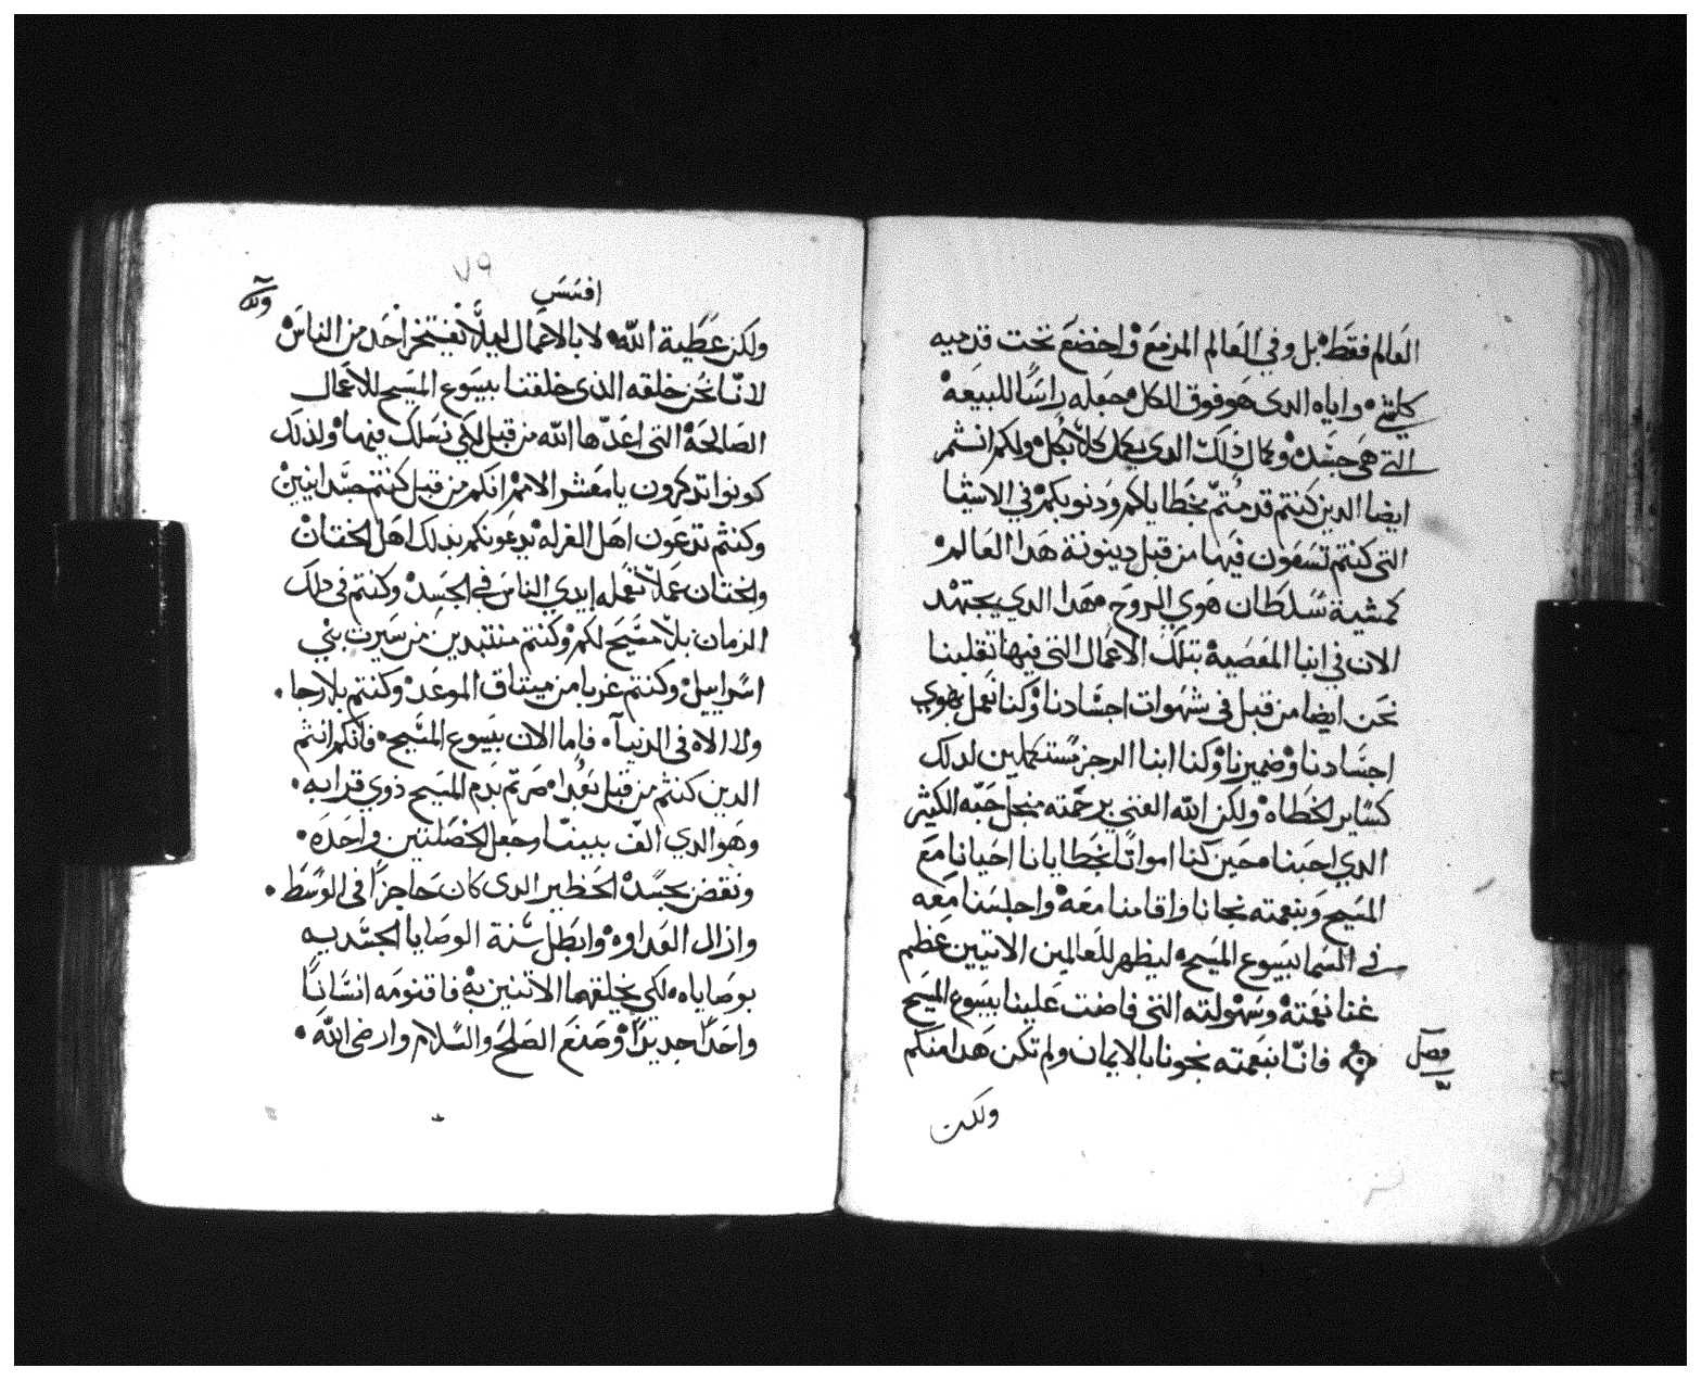 العالم فقط بل وفي العالم المزمع واخضع تحت قدميه
كلشي واياه الدى هو فوق الكل جعله راسًا للبيعة
التي هى جسده وكمال ذلك الدي يكمل كلاً بكل ولكم انتم
ايضا الدين كنتم قد متم بخطاياكم ودنوبكم في الاشيا
التى كنتم تسعون فيها من قبل دينونة هدا العالم
كمشية سلطان هوي الروح هدا الدي يجتهد
الان في ابنا المعصية بتلك الاعمال التى فيها تقلبنا
نحن ايضا من قبل فى شهوات اجسادنا وكنا نعمل بهوي
اجسادنا وضميرنا وكنا ابنا الرجز مستكملين لدلك
كساير الخطاه ولكن الله الغني برحمته منجل حبه الكثير
الدي احبنا حين كنا امواتًا بخطايانا احيانا مع
المسيح وبنعمته نجانا واقامنا معه واجلسنا معه
في السما بيسوع المسيح ليظهر للعالمين الاتيين عظم
غنا نعمته وسهولته التى فاضت علينا بيسوع المسيح
فصل
فانّا بنعمته نجونا بالايمان ولم تكن هدا منكم
ولكن
٧٩
افسس
ولكن عطية الله لا بالاعمال ليلاً يفتخر احد من الناس
لانّا نحن خلقه الذى خلقنا بيسوع المسيح للاعمال
الصالحة التى اعدّها الله من قبل لكي نسلك فيها ولذلك
كونوا تدكرون يا معشر الامم انكم من قبل كنتم جسدانيين
وكنتم تدعون اهل الغرله يدعونكم بدلك اهل الختان
والختان عملاً تعمله ايدي الناس في الجسد وكنتم فى دلك
الزمان بلا مسيح لكم وكنتم منتبدين من سيرت بني
اسراييل وكنتم غربا من ميتاق الموعد وكنتم بلا رجا
ولا الاه فى الدنيا فاما الان بيسوع المسيح فانكم انتم
الدين كنتم من قبل بعدا صرتم بدم المسيح ذوي قرابه
وهو الدي الّف بيننا وجعل الخصلتين واحده
ونقض بجسده الحظير الدى كان حاجزًا فى الوسط
وازال العداوه وابطل سنة الوصايا الجسديه
بوصاياه لكي يخلقهما الاتنين به فاقنومه انسانًا
واحدًا جديدًا وصنع الصلح والسلام وارضى الله